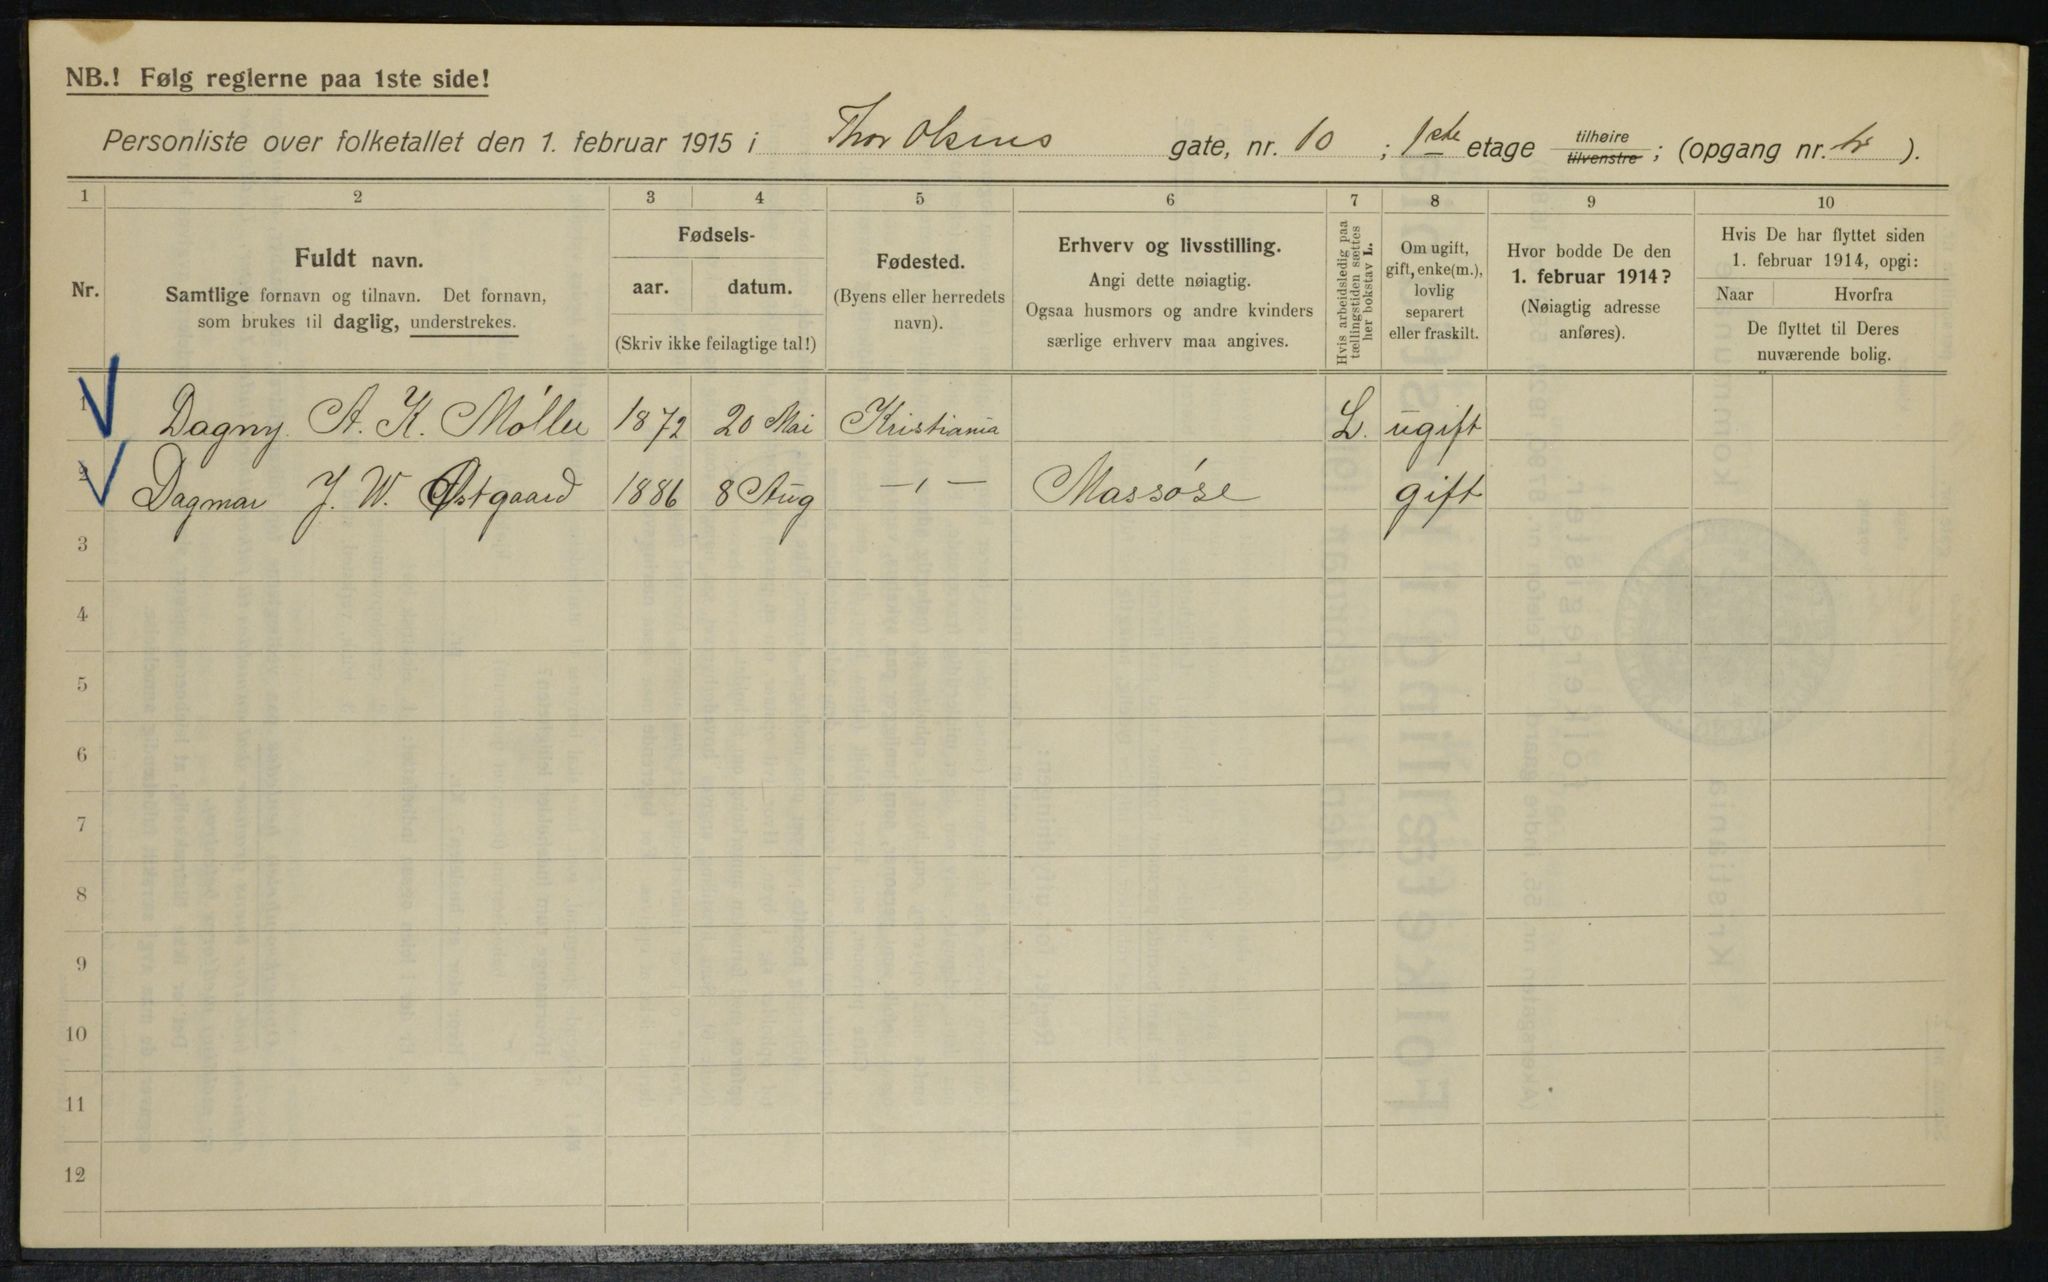 NB.! Følg reglerne paa 1ste side!
Personliste over folketallet den 1. februar 1915 i Thor Olsens gate, nr. 10 ; 1ste etage tilhøire tilvenstre ; (opgang nr. ).
1 2 3 4 5 6 7 8 9 10
Nr.
Fuldt navn.
Samtlige fornavn og tilnavn. Det fornavn,
som brukes til daglig, understrekes.
Fødsels-
aar. datum.
(Skriv ikke feilagtige tal!)
Fødested.
(Byens eller herredets
navn).
Erhverv og livsstilling.
Angi dette nøiagtig.
Ogsaa husmors og andre kvinders
særlige erhverv maa angives.
Hvis arbeidsledig paa
tællingstiden sættes
her bokstav L.
Om ugift,
gift, enke(m.),
lovlig
separert
eller fraskilt.
Hvor bodde De den
1. februar 1914?
(Nøiagtig adresse
anføres).
Hvis De har flyttet siden
1. februar 1914, opgi:
Naar Hvorfra
De flyttet til Deres
nuværende bolig.
1 Dagny A. K. Møller 1872 20 Mai Kristiania L. ugift
2 Dagmar J. W. Østgaard 1886 8 Aug —„— Massøse gift
3
4
5
6
7
8
9
10
11
12